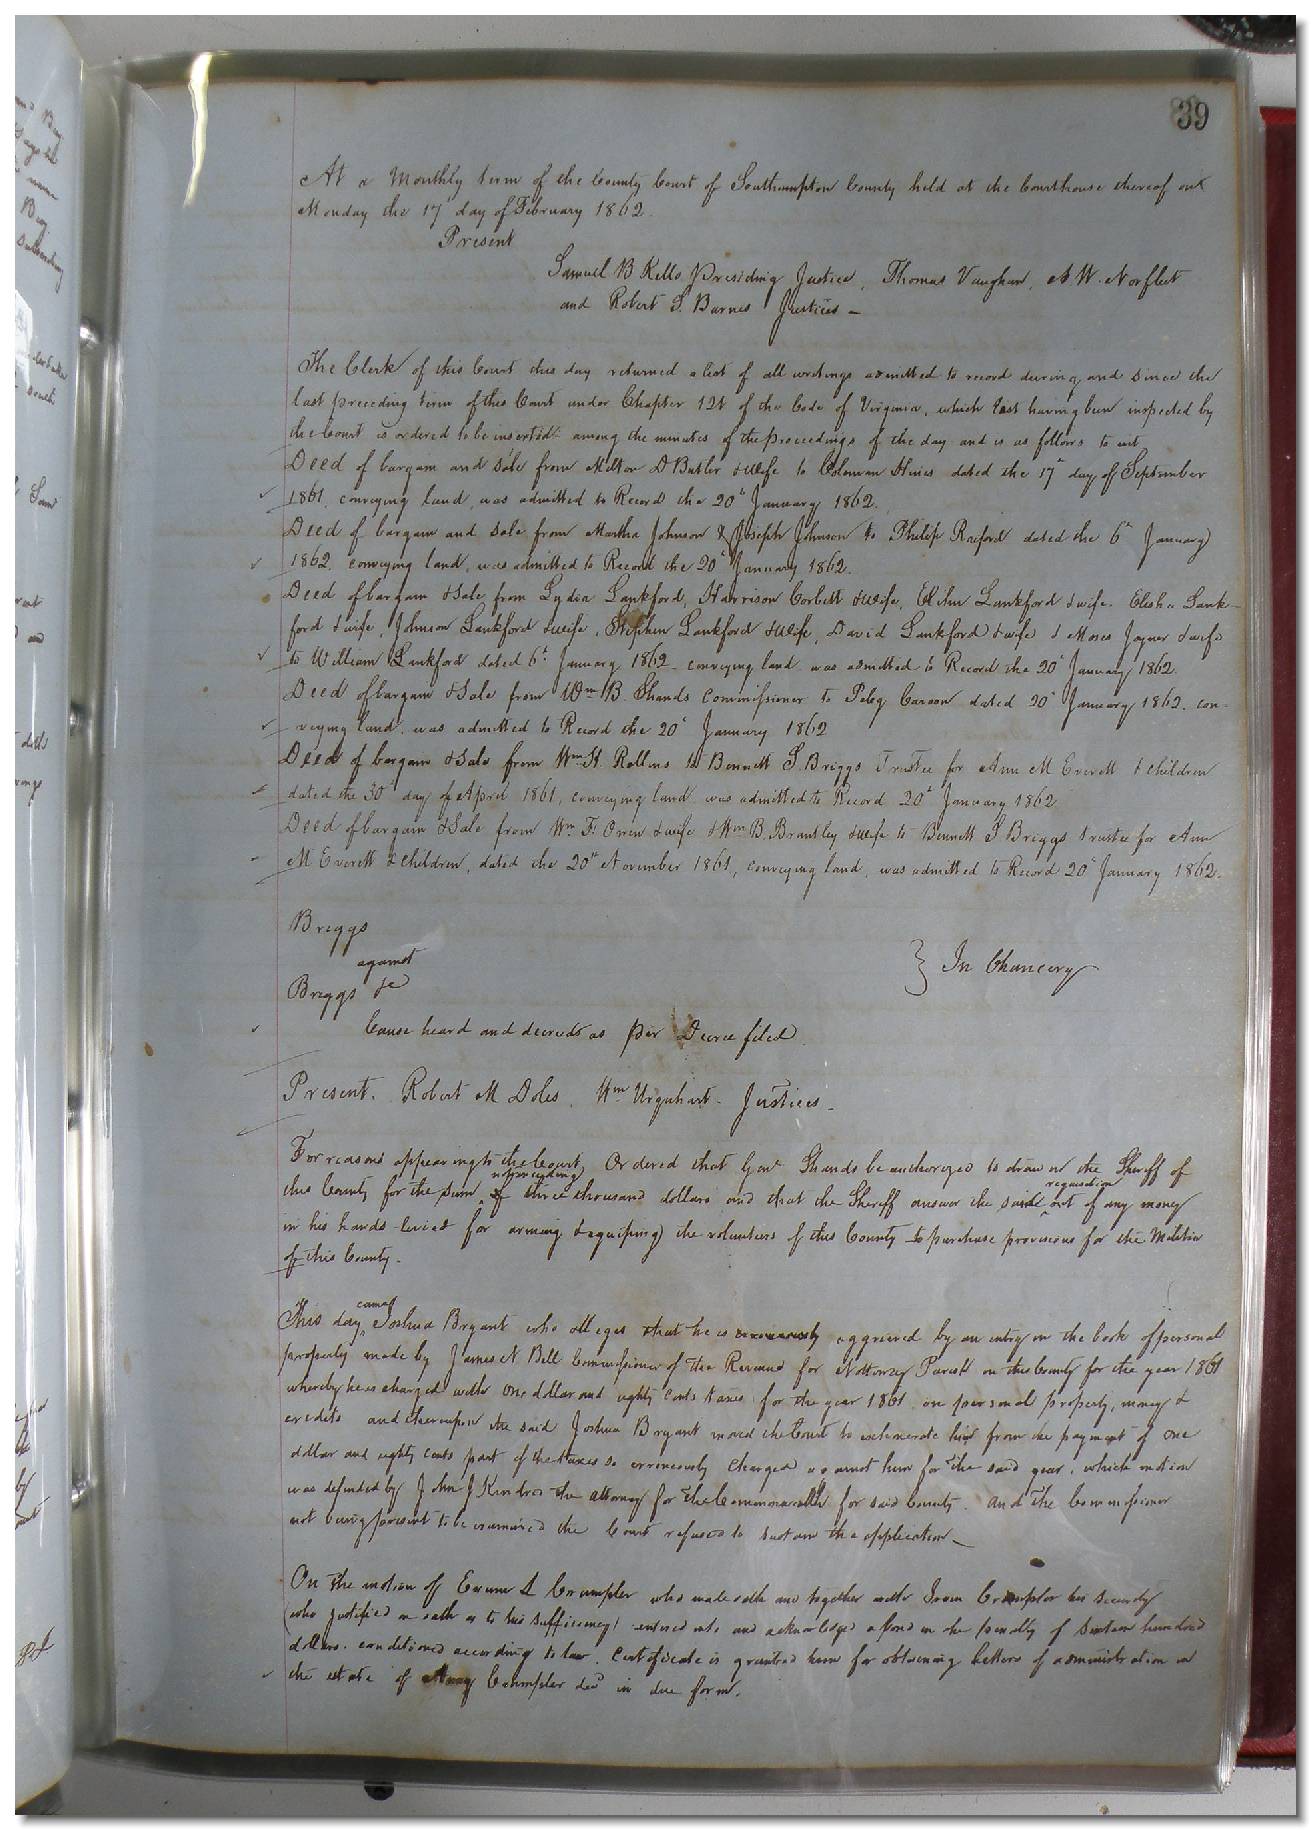 39
At a Monthly term of the County Court of Southampton County held at the Courthouse thereof on
Monday the 17th day of February 1862.
Present
Samuel B Kello Presiding Justice, Thomas Vaughan, A. W. Norfleet
and Robert S. Barnes Justices –
The Clerk of this Court this day returned a list of all writings admitted to record during and since the
last preceding term of this Court under Chapter 121 of the Code of Virginia, which list having been inspected by
the Court is ordered to be inserted among the minutes of the proceedings of the day and is as follows to wit
Deed of bargain and sale from Milton D Butler & wife to Coleman Hines dated the 17th day of September
1861, conveying land, was admitted to Record the 20th January 1862.
Deed of bargain and sale from Martha Johnson & Joseph Johnson to Philip Raiford dated the 6th January
1862, conveying land, was admitted to Record the 20th January 1862.
Deed of bargain & Sale from Lydia Lankford, Harrison Corbett & wife, Elihu Lankford & wife, Elisha Lank–
ford & wife, Johnson Lankford & wife, Stephen Lankford & Wife, David Lankford & wife & Moses Joyner & wife
to William Lankford dated 6th January 1862 conveying land was admitted to Record the 20th January 1862.
Deed of bargain & Sale from Wm B. Shands Commissioner to Peleg Carson dated 20th January 1862, con–
veying land, was admitted to Record the 20th January 1862
Deed of bargain & Sale from Wm H. Rollins to Bennett S. Briggs Trustee for Ann M Everett & children
dated the 30th day of April 1861, conveying land was admitted to Record 20th January 1862
Deed of bargain & Sale from Wm F. Owen & wife & Wm B. Brantley & wife to Bennett S Briggs trustee for Ann
M Everett & children, dated the 20th November 1861, conveying land, was admitted to Record 20th January 1862.
Briggs
against
Briggs &c
} In Chancery
Cause heard and decreed as per Decree filed
Present. Robert M Doles, Wm Urquhart – Justices –
For reasons appearing to the Court, Ordered that Gov Shands be authorized to draw on the Sheriff of
not exceeding
this County for the sum of three thousand dollars and that the Sheriff answer the said out of any money
requisition
in his hands levied for arming & equiping the volunteers of this County to purchase provisions for the Militia
of this County.
came
This day Joshua Bryant who alleges that he is erroneously aggrieved by an entry on the book of personal
property made by James N. Bell Commissioner of the Revenue for Nottoway Parish in this County for the year 1861
whereby he is charged with one dollar and eighty cents taxes for the year 1861 on personal property, money &
credits and thereupon the said Joshua Bryant moved the Court to exhonerate him from the payment of one
dollar and eighty cents part of the taxes so erroneously charged against him for the said year, which motion
was defended by John J Kindred the attorney for the Commonwealth for said County. And the Commissioner
not being present to be examined the Court refused to sustain the application –
On the motion of Exum L Crumpler who made oath and together with Crumpler his security
(who justified on oath as to his sufficiency) entered into and acknowledged a bond in the penalty of Sixteen hundred
dollars, conditioned according to law, Certificate is granted him for obtaining letters of administration on
the estate of Crumpler decd in due form.